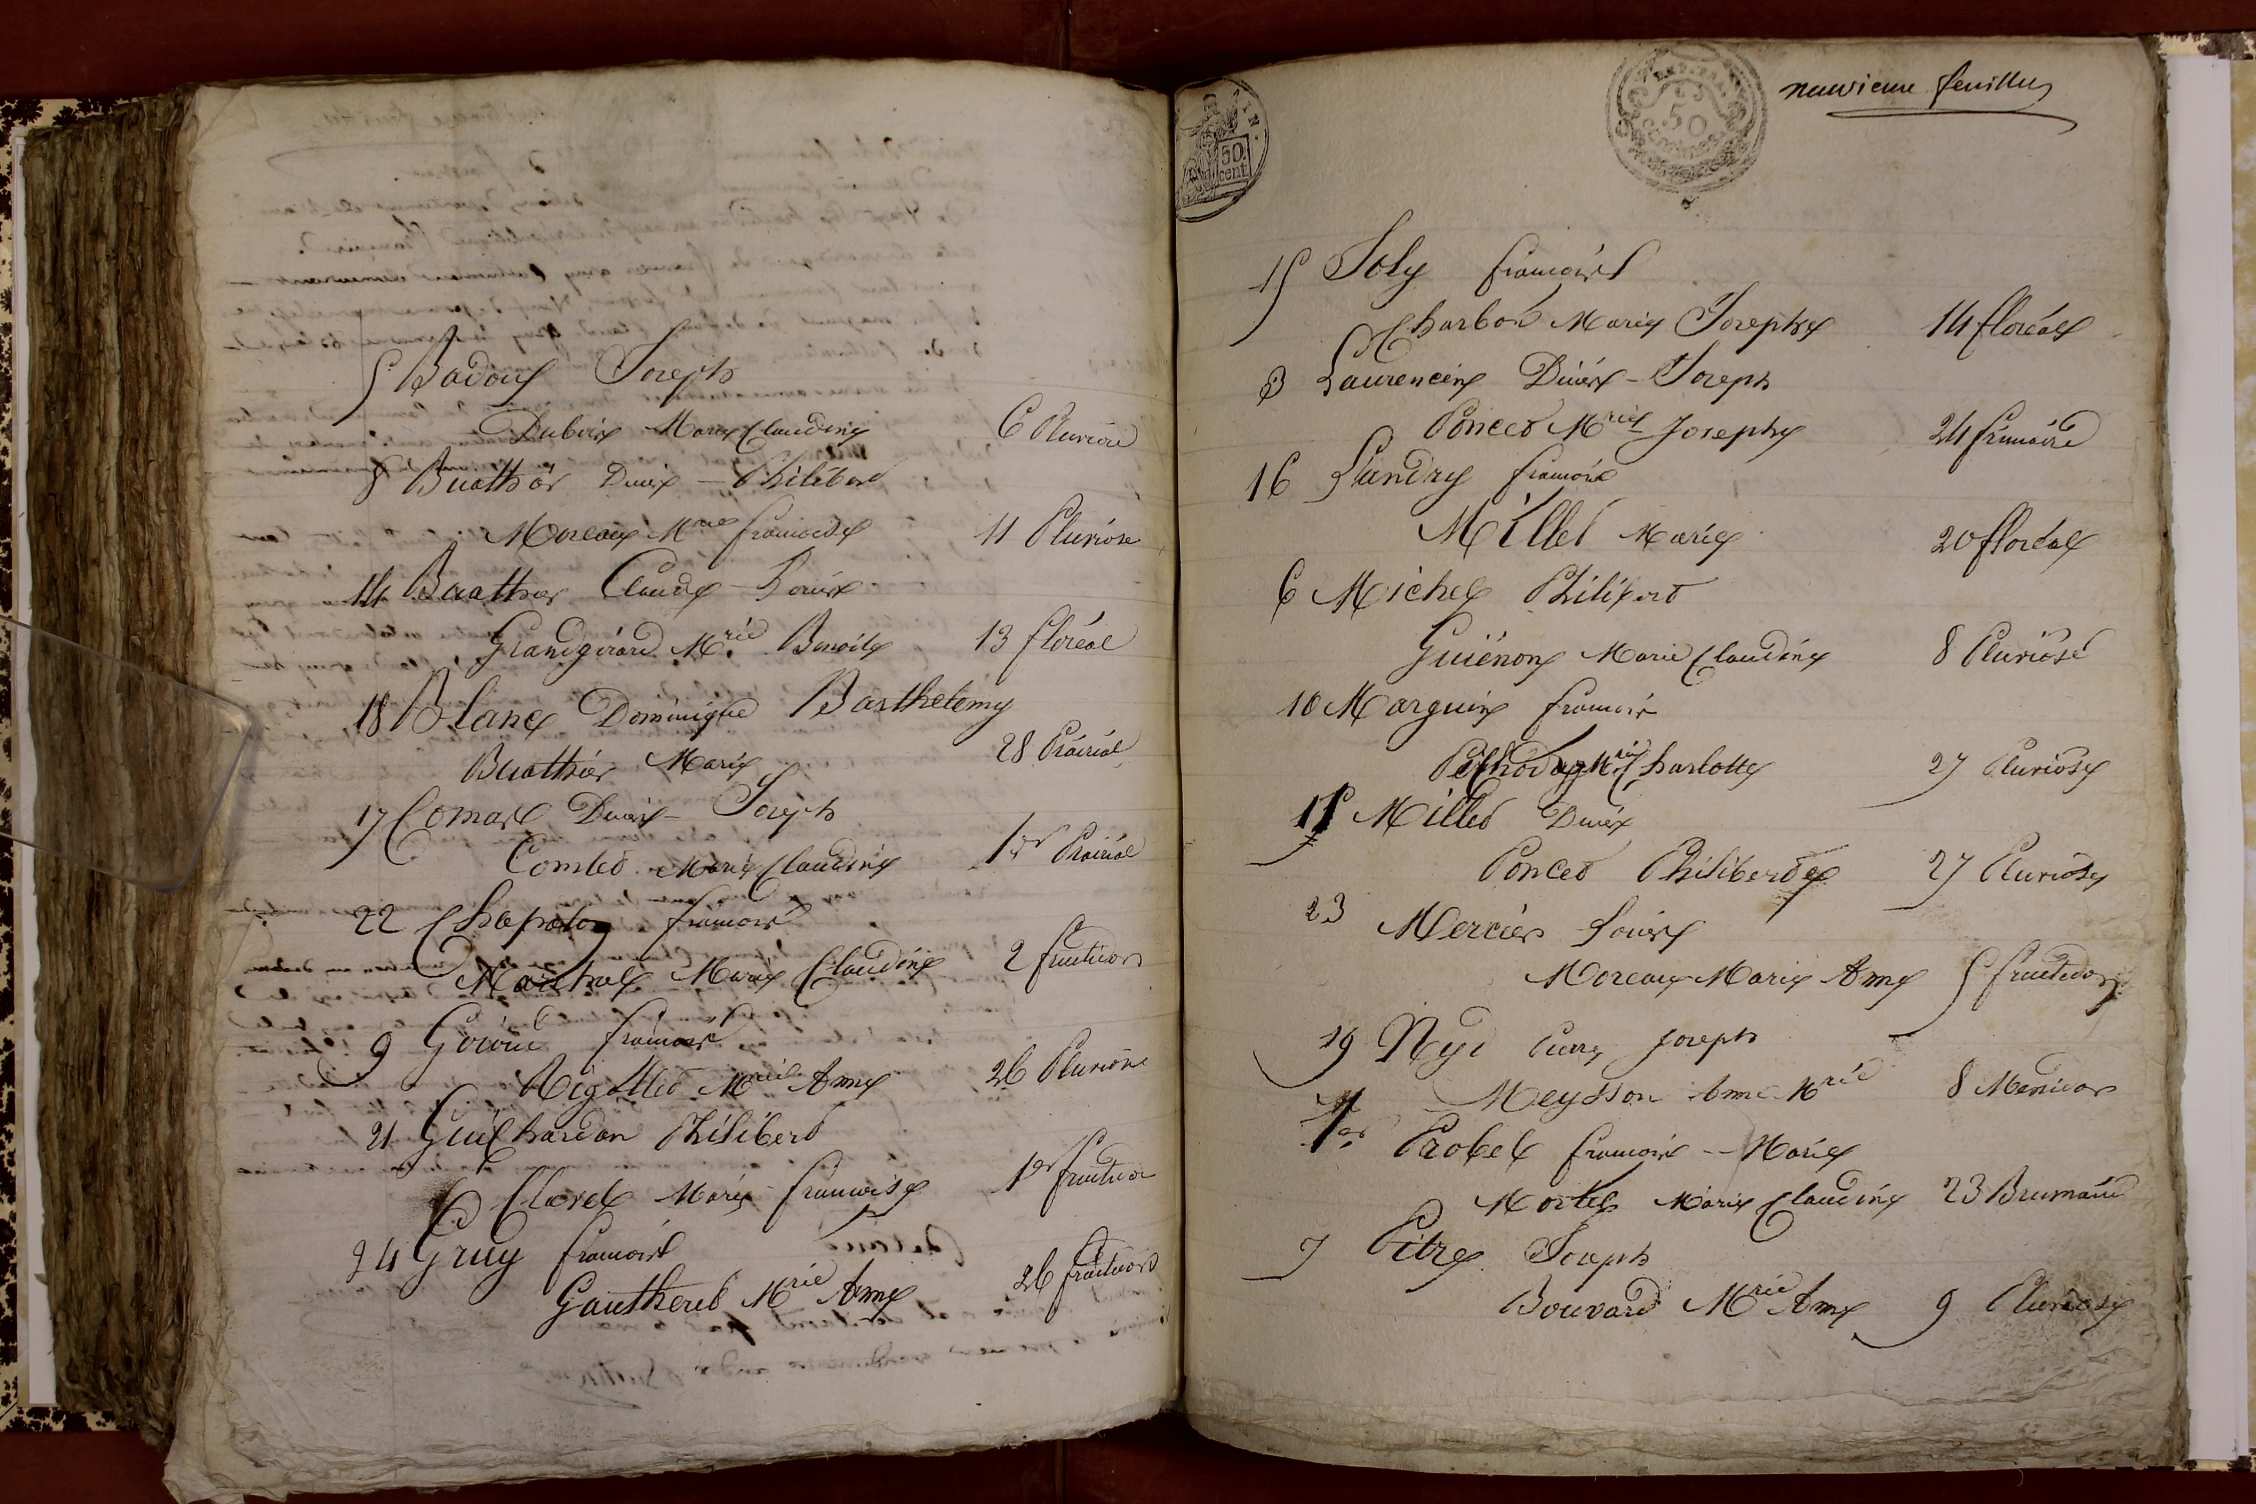 5 Badoux Joseph
Dubois Marie Claudine 6 Pluviose
8 Buathier Denis - Philibert
Moreau Mrie francoise 11 Pluviose
14 Buathier Claude - Louis
Grandgirard Mrie Benoite 13 floréal
18 Blanc Dominique Barthelemy
Buathier Marie 28 Prairial
17 Comas Denis - Joseph
Combet Marie Claudine 1er Prairial
22 Chapoton francois
Marchal Marie Claudine 2 fructidor
9 francois
Rigollet Mrie Anne 26 Pluviose
21 Guichardon Philibert
Clavel Marie francoise 1er fructidor
24 Gruy francois
Gautheret Mrie Anne 26 fructidor
50. cent.
50
neuvieme feuillet
15 Joly francois
Charbon Marie Josephe 14 floréal
3 Laurencin Denis - Joseph
Poncet Mrie Josephe 24 frimaire
16 Landry francois
Millet Marie 20 floréal
6 Michel Philibert
Guienon Marie Claudine 8 Pluviose
10 Marguin francois
Mrie Charlotte 27 Pluviose
11 Millet Denis
Poncet Philiberte 27 Pluviose
23 Mercier Louis
Moreau Marie Anne 5 fructidor
19 Nyd Pierre Joseph
Meysson Anne Mrie 8 Messidor
1er Probel francois -- Marie
Mortel Marie Claudine 23 Brumaire
7 Pitre Joseph
Bouvard Mrie Anne 9 Pluviose